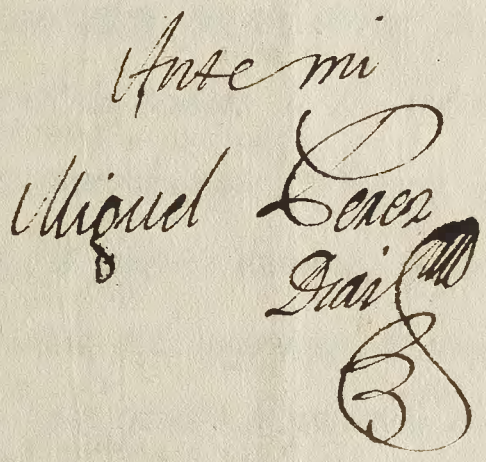 Ante mi
Miguel Perez